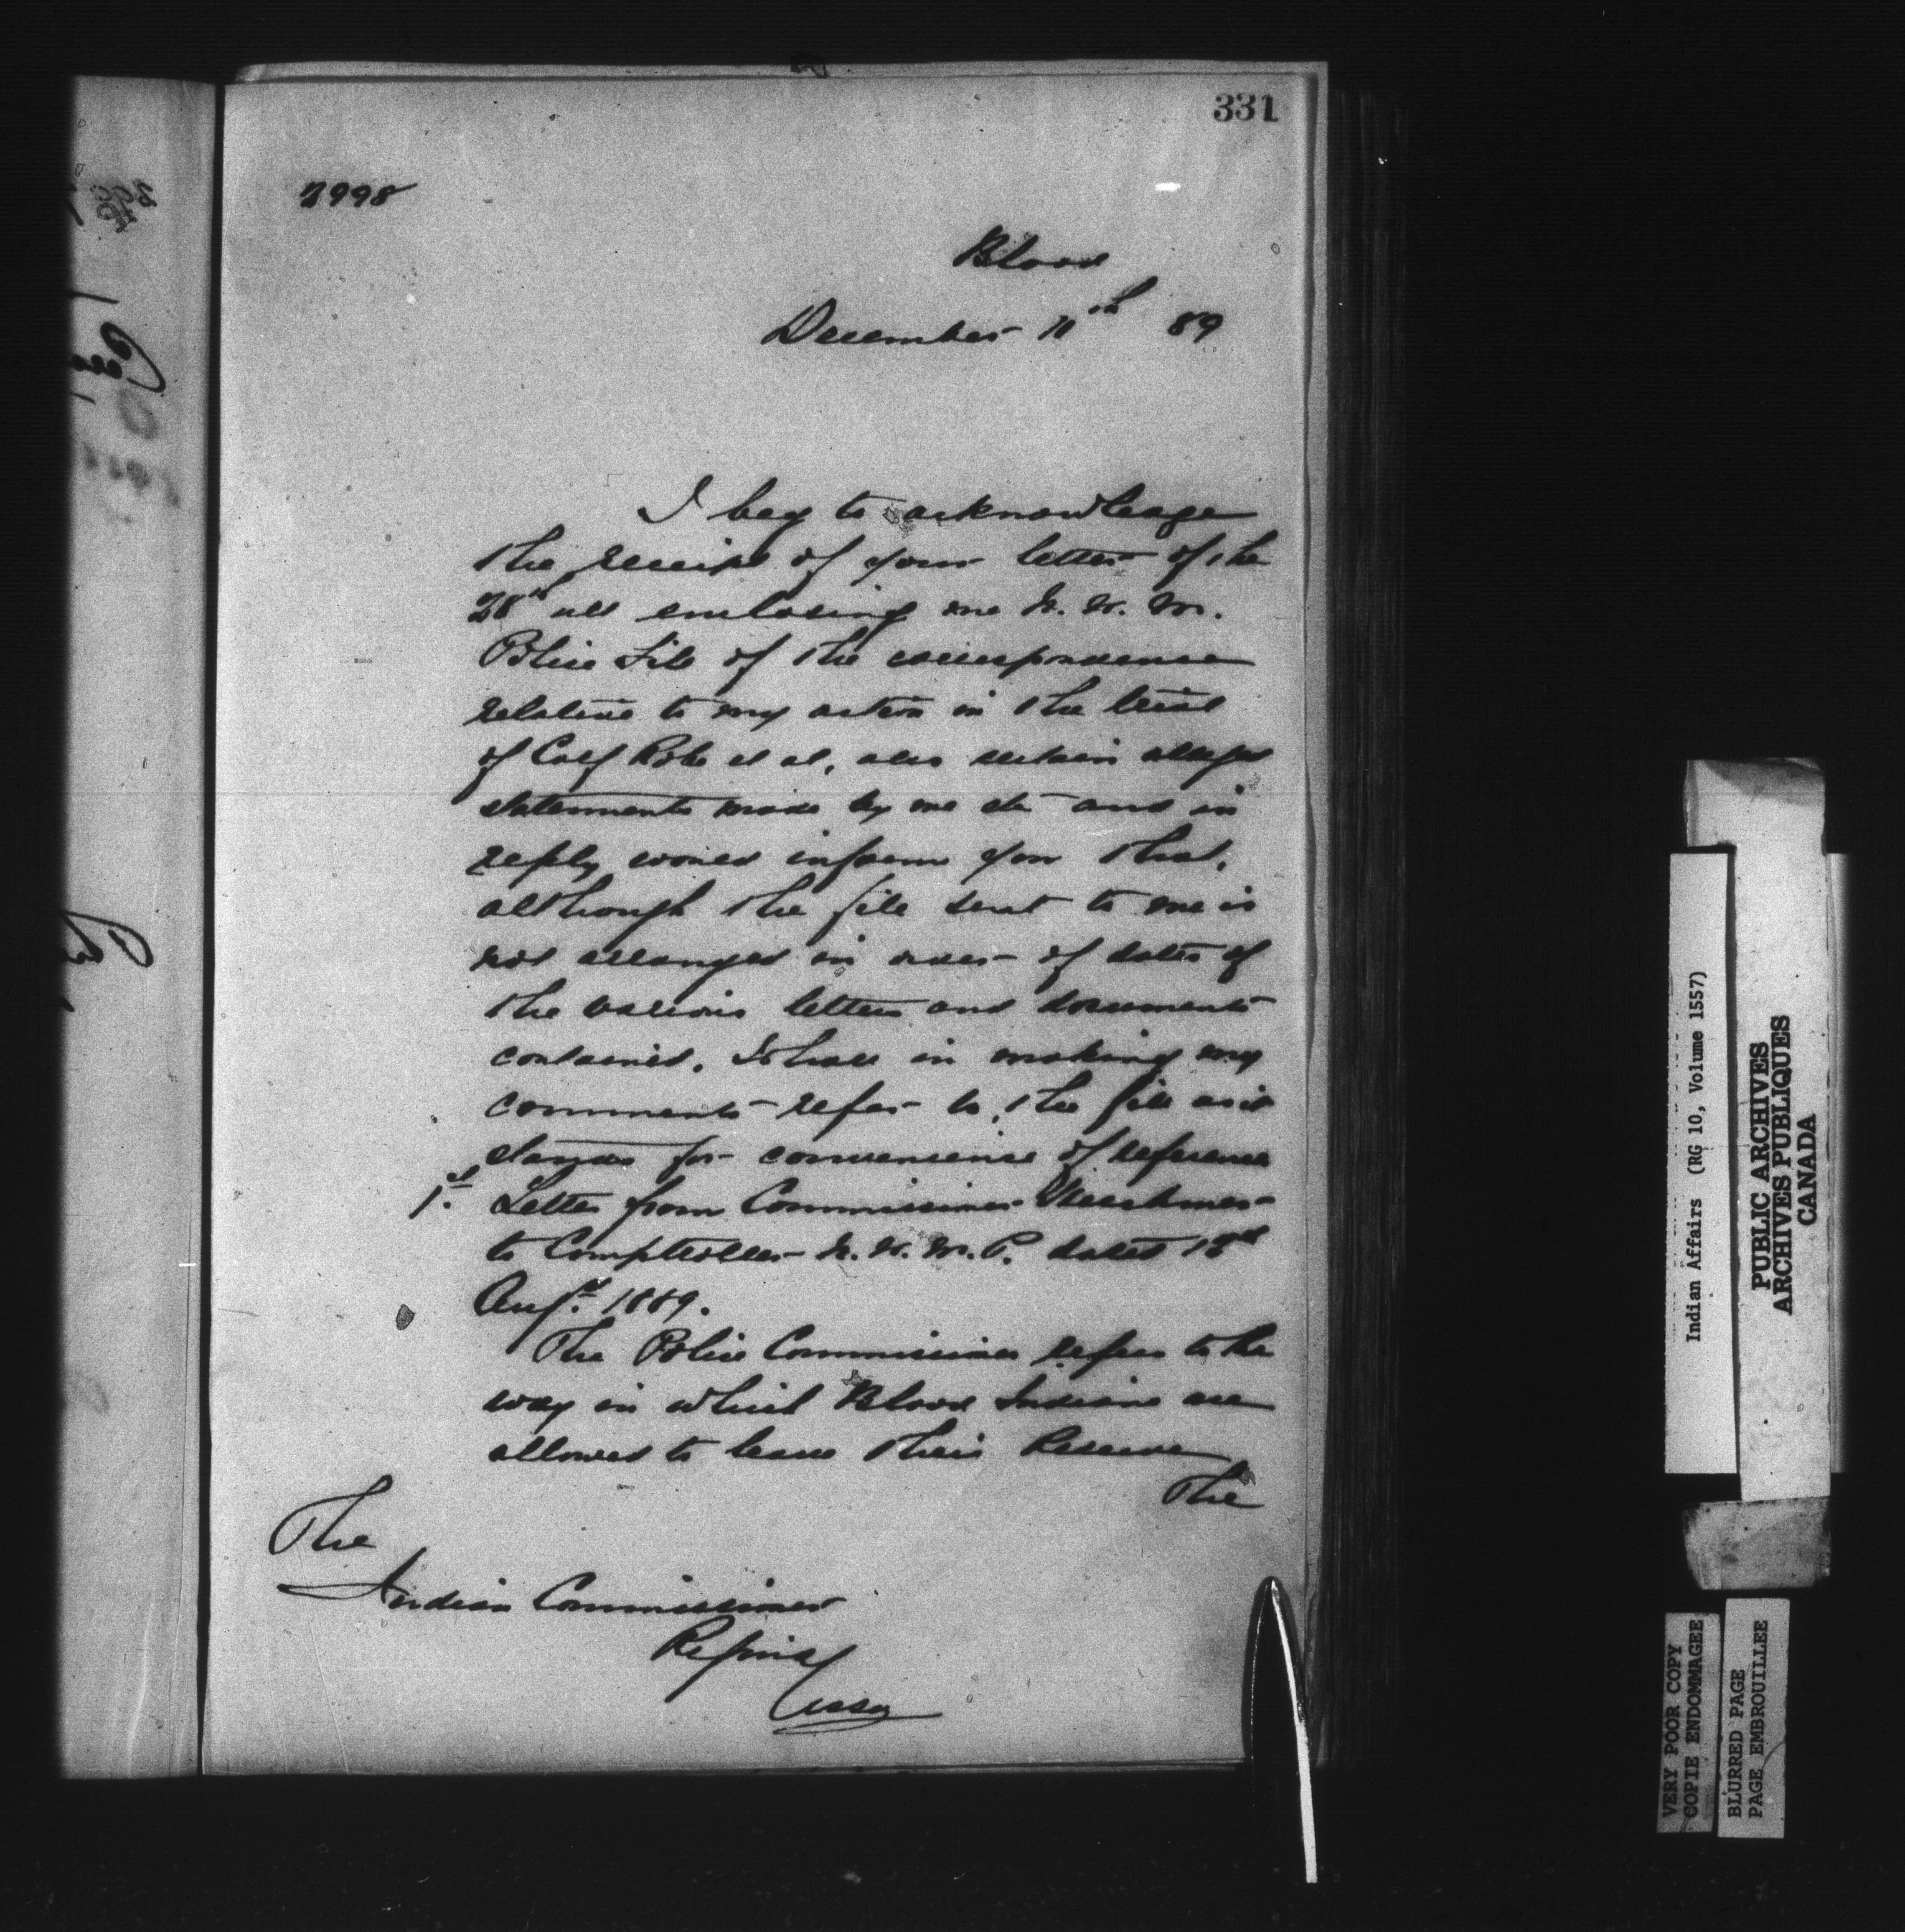 331
2998
Blood
December 11th 89
I beg to acknowledge
the receipt of your letter of the
28th ult enclosing me N. W. M.
Police File of the correspondence
relative to my action in the trial
of Calf Robe et al, also certain alleged
statements made by me etc and in
reply would inform you that,
although the file sent to me is
not arranged in order of dates of
the various letters and documents
contained, I shall in making my
comments refer to the file as it
stands for convenience of reference
1st. Letter from Commissioner Herchmer
to Comptroller N. W. M. P. dated 18th
Augst. 1889.
The Police Commissioner refers to the
way in which Blood Indians are
allowed to leave their Reserve
The
The
Indian Commissioner
Regina
Assa
Indian Affairs (RG 10, Volume 1557)
PUBLIC ARCHIVES
ARCHIVES PUBLIQUES
CANADA
VERY POOR COPY
COPIE ENDOMMAGEE
BLURRED PAGE
PAGE EMBROUILLEE